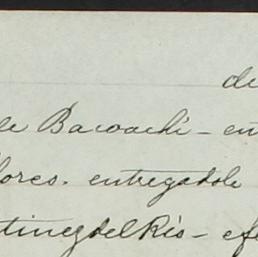 de
de Bacoachi - en
lores. entregadole
tinez del Rio - efe